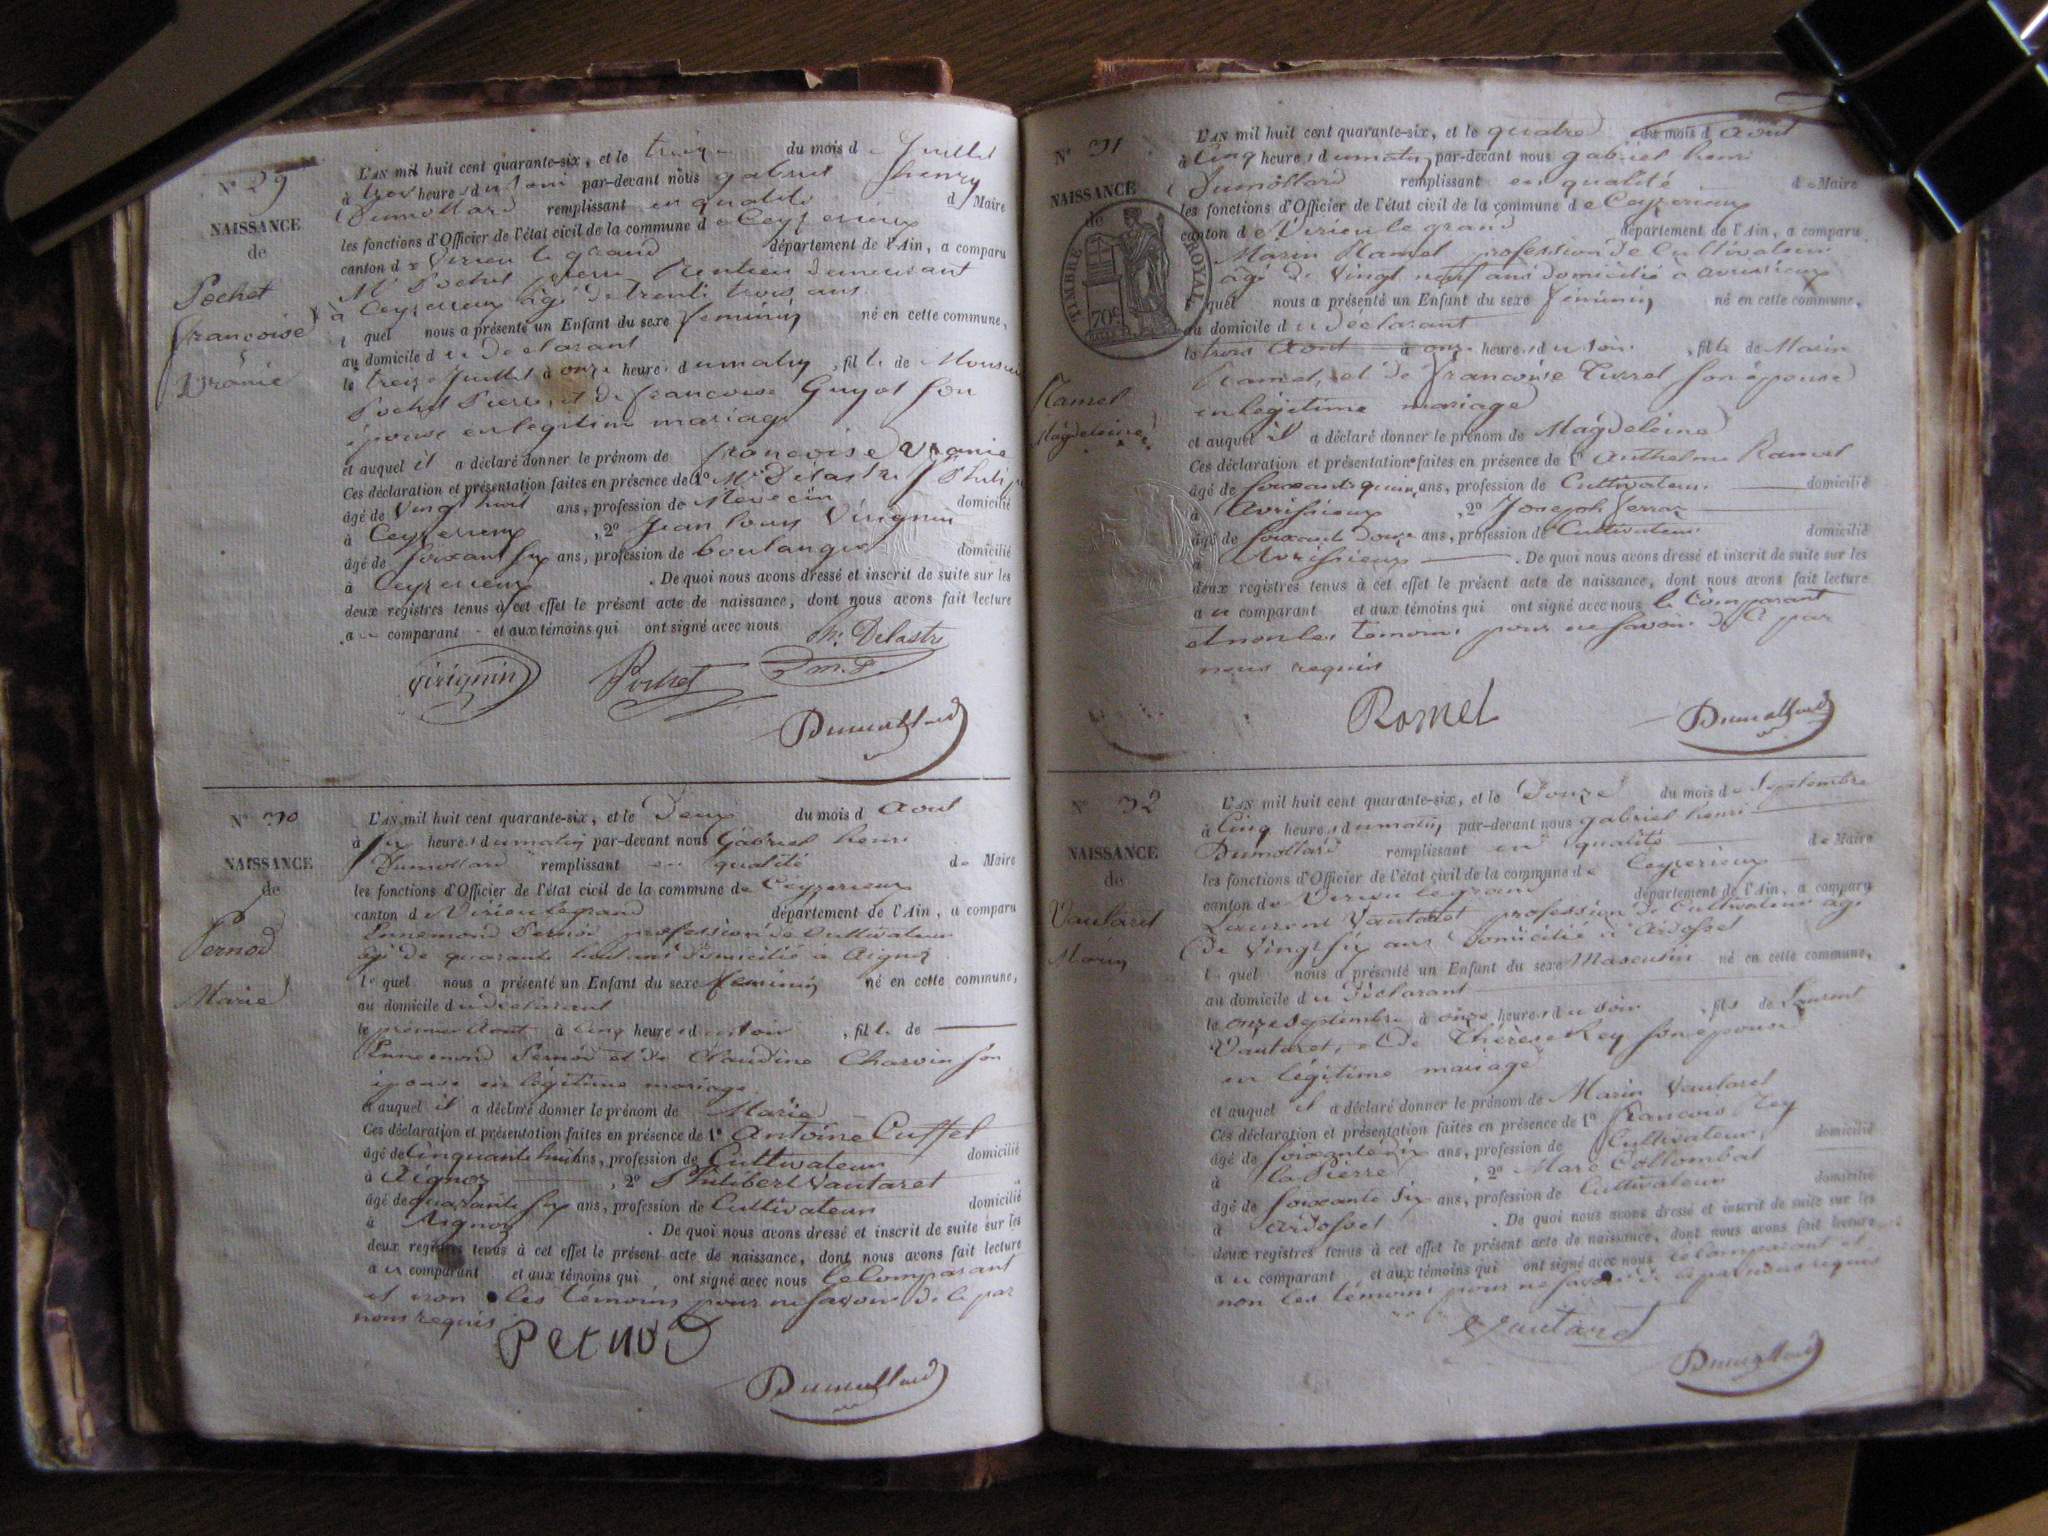 N° 29
NAISSANCE
de
Pochet
françoise
Uranie
L'AN mil huit cent quarante-six, et le treize du mois d e Juillet
à trois heures du soir par-devant nous gabriel henry
Dumollard remplissant en qualité d Maire
les fonctions d'Officier de l'état civil de la commune d e Ceyzerieux
canton d e Virieu le grand département de l'Ain, a comparu
Mr Pochet pierre Rentier demeurant
à Ceyzerieux âgé de trente trois ans
l quel nous a présenté un Enfant du sexe féminin né en cette commune,
au domicile d u Déclarant
le treize Juillet à onze heures du matin, fille de Monsieur
Pochet Pierre, et de françoise Guyot son
épouse en légitime mariage
et auquel il a déclaré donner le prénom de françoise Uranie
Ces déclaration et présentation faites en présence de 1° Mr Delastre
âgé de Vingt huit ans, profession de Médecin domicilié
à Ceyzerieux, 2° Jean louis Virignin
âgé de soixante six ans, profession de boulanger domicilié
à Ceyzerieux. De quoi nous avons dressé et inscrit de suite sur les
deux registres tenus à cet effet le présent acte de naissance, dont nous avons fait lecture
au comparant et aux témoins qui ont signé avec nous
Ph. Delastre
Virignin Pochet D.m.P
Dumollard
N° 30
NAISSANCE
de
Pernod
Marie
L'AN mil huit cent quarante-six, et le Deux du mois d Aout
à six heures du matin par-devant nous Gabriel henri
Dumollard remplissant en qualité de Maire
les fonctions d'Officier de l'état civil de la commune de Ceyzerieux
canton de Virieu legrand département de l'Ain, a comparu
Ennemond Pernod profession de Cultivateur
âgé de quarante huit ans domicilié a Aignoz
le quel nous a présenté un Enfant du sexe feminin né en cette commune,
au domicile du déclarant
le premier Aout à cinq heures du soir, fille de
Ennemond Pernod et de Claudine Charvin son
épouse en légitime mariage
et auquel il a déclaré donner le prénom de Marie
Ces déclaration et présentation faites en présence de 1° Antoine Cuffet
âgé de Cinquante huit ans, profession de Cultivateur domicilié
à Aignoz, 2° Philibert Vautaret
âgé de quarante six ans, profession de Cultivateur domicilié
à Aignoz. De quoi nous avons dressé et inscrit de suite sur les
deux registres tenus à cet effet le présent acte de naissance, dont nous avons fait lecture
au comparant et aux témoins qui ont signé avec nous le Comparant
et non les témoins pour ne savoir de ce par
nous requis
Pernod
Dumollard
N° 31
NAISSANCE
de
TIMBRE ROYAL
70c
Ramel
Magdeleine
L'AN mil huit cent quarante-six, et le quatre du mois d Aout
à Cinq heures du matin par-devant nous gabriel henri
Dumollard remplissant en qualité de Maire
les fonctions d'Officier de l'état civil de la commune de Ceyzerieux
canton de Virieu le grand département de l'Ain, a comparu
Marin Ramel profession de Cultivateur
âgé de Vingt neuf ans domicilié a avrissieux
l quel nous a présenté un Enfant du sexe féminin né en cette commune,
au domicile du déclarant
le trois Aout à onze heures du soir, fille de Marin
Ramel, et de françoise Turrel son épouse
en légitime mariage
et auquel il a déclaré donner le prénom de Magdeleine
Ces déclaration et présentation faites en présence de 1° Anthelme Ramel
âgé de soixante quinze ans, profession de Cultivateur domicilié
à Avrissieux, 2° Joseph
âgé de soixante douze ans, profession de Cultivateur domicilié
à Avrissieux. De quoi nous avons dressé et inscrit de suite sur les
deux registres tenus à cet effet le présent acte de naissance, dont nous avons fait lecture
au comparant et aux témoins qui ont signé avec nous le Comparant
et non les témoins pour ne savoir de ce par
nous requis
Romel Dumollard
N° 32
NAISSANCE
de
Vautaret
Marin
L'AN mil huit cent quarante-six, et le Douze du mois de Septembre
à Cinq heures du matin par-devant nous gabriel henri
Dumollard remplissant en qualité de Maire
les fonctions d'Officier de l'état civil de la commune de Ceyzerieux
canton de Virieu legrand département de l'Ain, a comparu
Laurent Vautaret profession de Cultivateur âgé
de Vingt six ans domicilié à Ardosset
le quel nous a présenté un Enfant du sexe Masculin né en cette commune,
au domicile du déclarant
le onze septembre à onze heures du soir, fils de Laurent
Vautaret, et de Thérèse Rey son épouse
en légitime mariage
et auquel il a déclaré donner le prénom de Marin Vautaret
Ces déclaration et présentation faites en présence de 1° françois Rey
âgé de soixante six ans, profession de Cultivateur domicilié
à la Pierre, 2° Marc Collombat
âgé de soixante six ans, profession de Cultivateur domicilié
à Ardosset. De quoi nous avons dressé et inscrit de suite sur les
deux registres tenus à cet effet le présent acte de naissance, dont nous avons fait lecture
au comparant et aux témoins qui ont signé avec nous le Comparant et
non les témoins pour ne savoir de ce par nous requis
Vautaret
Dumollard